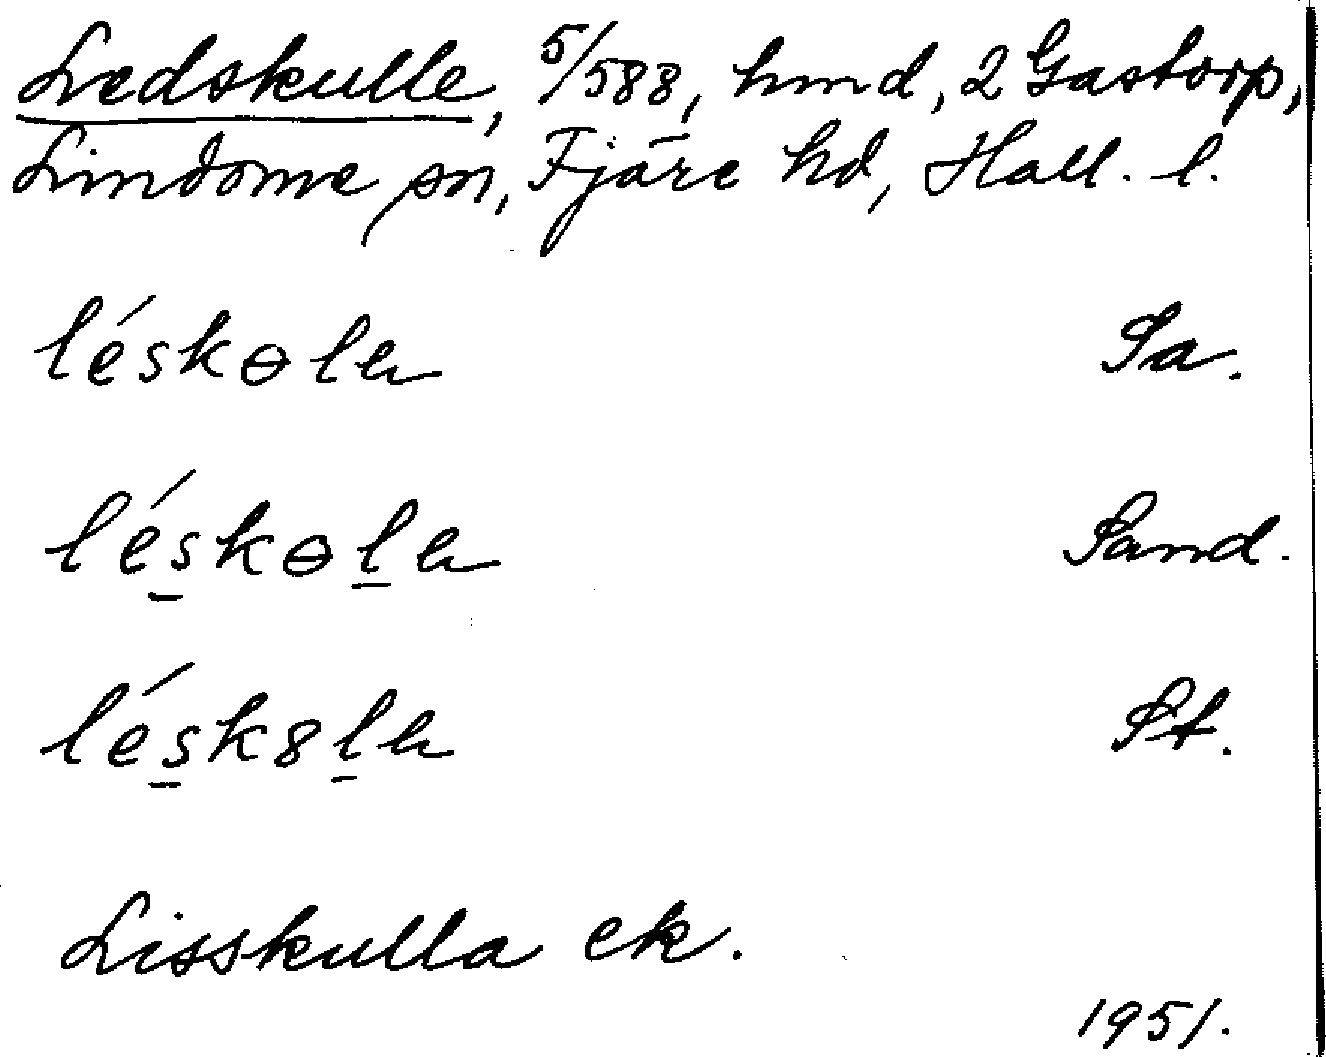 Ledskulle, 5/588, hmd, 2 Gastorp,
Lindome sn, Fjäre hd, Hall. l.
léskɵla Sa.
léskɵla Sand.
lésk8la St.
Lisskulla ek.
1951.